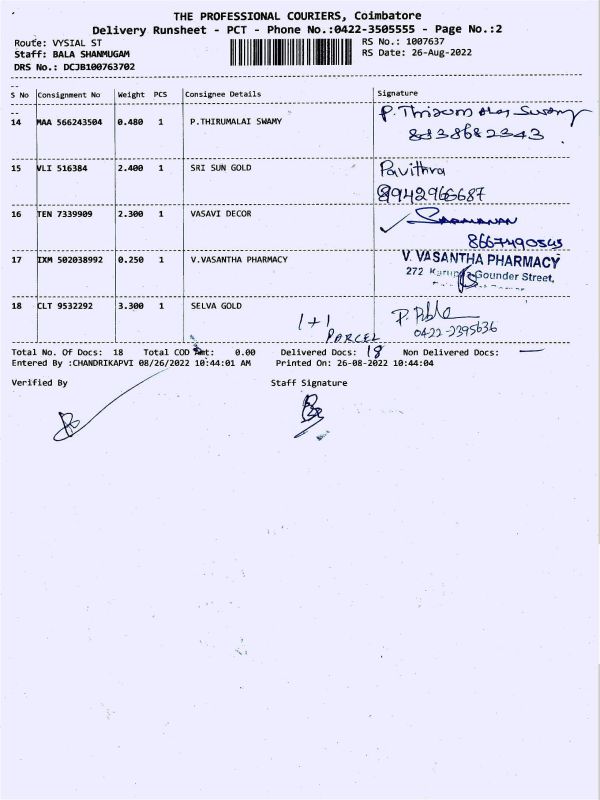 THE PROFESSIONAL COURIERS, Coimbatore
Delivery Runsheet - PCT - Phone No.:0422-3505555 - Page No.:2
Route: VYSIAL ST RS No.: 1007637
Staff: BALA SHANMUGAM RS Date: 26-Aug-2022
DRS No.: DCJB100763702
S No Consignment No Weight PCS Consignee Details Signature
14 MAA 566243504 0.480 1 P.THIRUMALAI SWAMY P. Thirumalai Swamy
15 VLI 516384 2.400 1 SRI SUN GOLD Pavithra
9942966687
16 TEN 7339909 2.300 1 VASAVI DECOR
8667490545
17 IXM 502038992 0.250 1 V.VASANTHA PHARMACY V. VASANTHA PHARMACY
272 Gounder Street,
18 CLT 9532292 3.300 1 SELVA GOLD 1+1 PARCEL
0422-2395636
Total No. Of Docs: 18 Total COD Amt: 0.00 Delivered Docs: 18 Non Delivered Docs: —
Entered By :CHANDRIKAPVI 08/26/2022 10:44:01 AM Printed On: 26-08-2022 10:44:04
Verified By Staff Signature